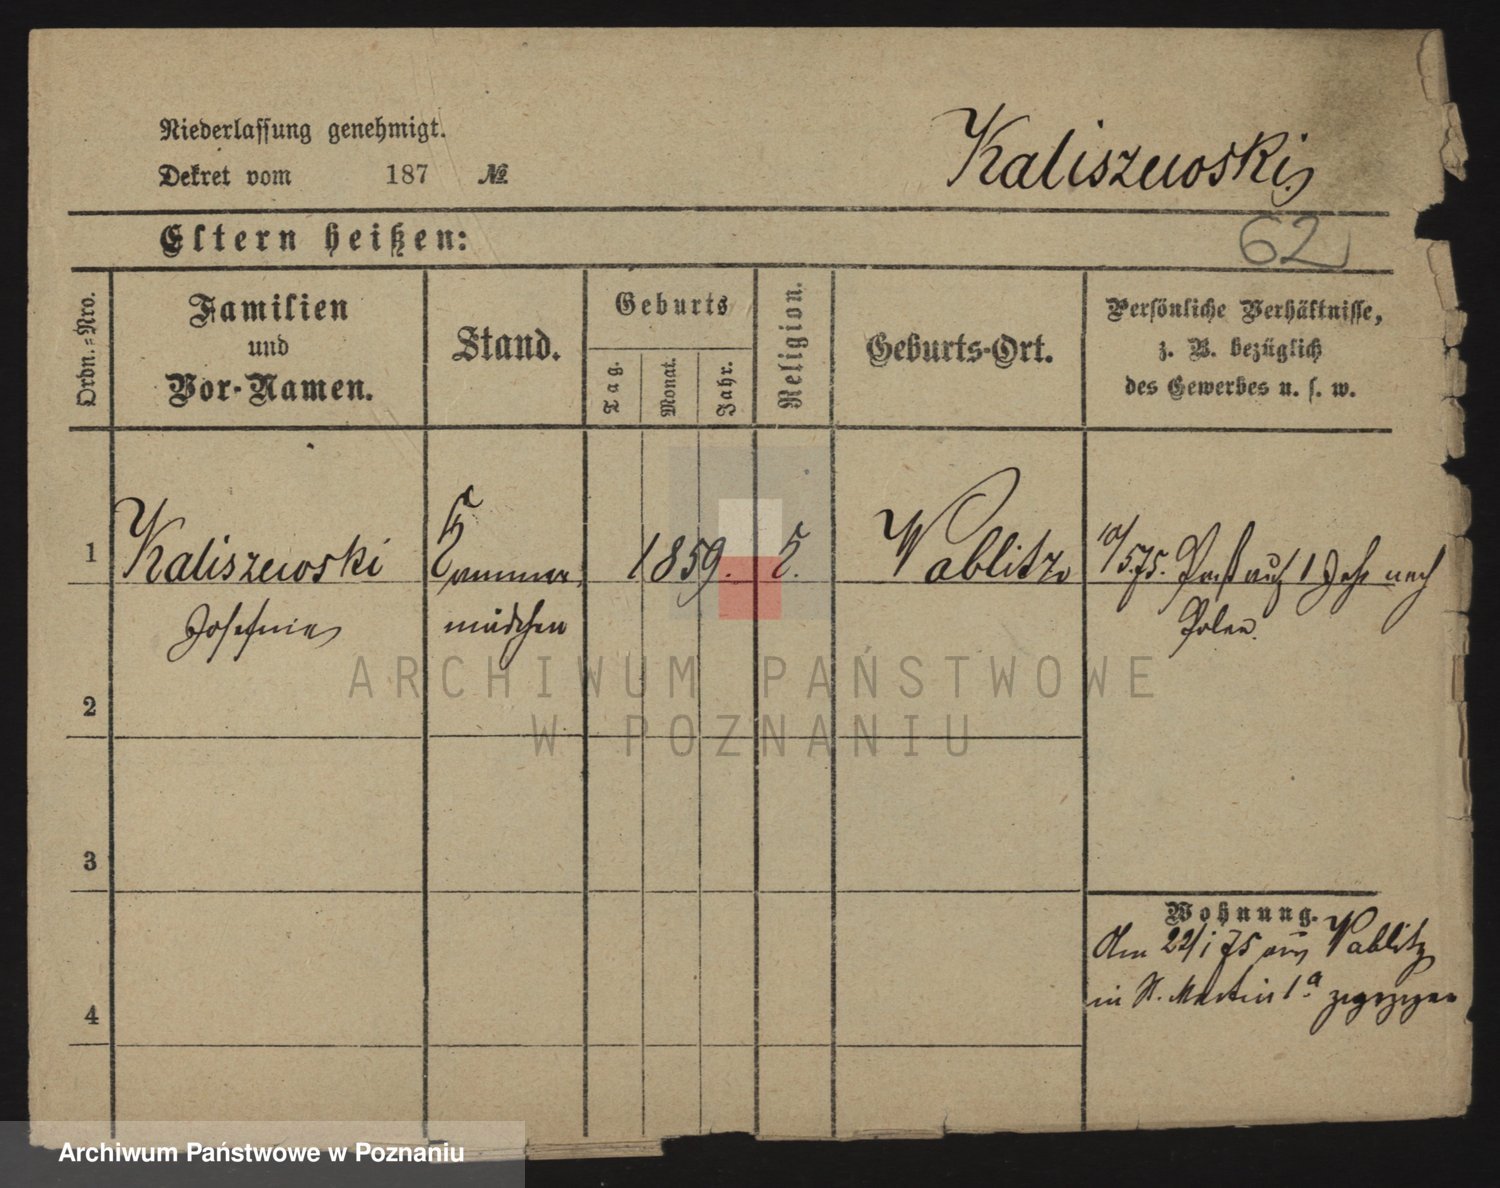 Niederlassung genehmigt.
Dekret vom 187 №
Kaliszewski
Eltern heißen:
62
Ordn.-Nro.
Familien
und
Vor-Namen.
Stand.
Geburts
Tag.
Monat.
Jahr.
Religion.
Geburts-Ort.
Persönliche Verhältnisse,
z. B. bezüglich
des Gewerbes u. s. w.
1
Kaliszewski
Josefine
Kammer
mädchen
1859.
k.
Wablitz
10/5.75. Paß auf 1 Jahr nach
Polen.
2
3
4
Wohnung.
Am 22/1 75 aus Wablitz
in St. Martin 1a zugezogen
ARCHIWUM PAŃSTWOWE
W POZNANIU
Archiwum Państwowe w Poznaniu